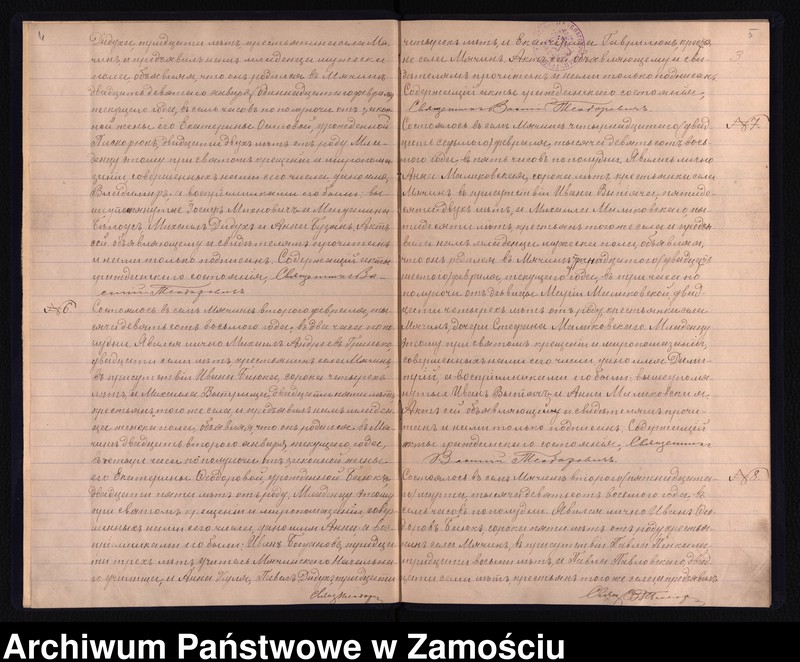 4
Дидуха, тридцати лѣтъ, крестьянина села Мя-
чина, и предъявилъ намъ младенца мужеска
пола, объявляя, что онъ родился въ Мячинѣ
двадцать девятаго января/одинадцатаго февраля
текущаго года, въ семь часовъ пополуночи отъ закон-
ной жены его Екатерины Осиповой, урожденной
двадцати двухъ лѣтъ отъ роду. Мла-
денцу этому при святомъ крещеніи и миропома-
заніи, совершенныхъ нами его числа, дано имя
Владимиръ, а воспріемниками его были: вы-
Іосифъ и
Михаилъ Дидухъ и Анна Актъ
сей объявляющему и свидѣтелямъ прочитанъ
и нами только подписанъ. Содержащій акты
гражданскаго состоянія, Священникъ Ва-
силій Теодоровичъ
№ 6.
Состоялось въ селѣ Мячинѣ втораго февраля, ты-
сяча девятьсотъ восьмаго года, въ два часа попо-
лудни. Явился лично Михаилъ Андреевъ
двадцати семи лѣтъ крестьянинъ села Мячина,
въ присутствіи Ивана Бѣлюка, сорока четырехъ
лѣтъ, и Максима двадцати пяти лѣтъ
крестьянъ того же села, и предъявилъ намъ младен-
ца женска пола, объявляя, что онъ родился въ Мя-
чинѣ двадцать втораго января, текущаго года,
въ четыре часа пополуночи отъ законной жены
его Екатерины Ѳеодоровой, урожденной Бѣлюкъ,
двадцати пяти лѣтъ отъ роду. Младенцу этому
при святомъ крещеніи и миропомазаніи, совер-
шенныхъ нами его числа, дано имя Анна, а вос-
пріемниками его были: Иванъ Богуновъ, тридца-
ти трехъ лѣтъ учитель Мячинскаго Начальна-
го училища, и Анна Куля, Павелъ Дидухъ, тридцати
5
3
четырехъ лѣтъ, и Екатерина Гаврилюкъ, кресть-
яне села Мячина. Актъ сей объявляющему и сви-
дѣтелямъ прочитанъ и нами только подписанъ
Содержащій акты гражданскаго состоянія,
Священникъ Василій Теодоровичъ.
№ 7.
Состоялось въ селѣ Мячинѣ четырнадцатаго/двад-
цать седьмаго/февраля, тысяча девятьсотъ вось-
маго года въ пять часовъ пополудни. Явилась лично
Анна Миликовская, сорока лѣтъ, крестьянка села
Мячина въ присутствіи Ивана пятиде-
сяти двухъ лѣтъ, и Михаила Миликовскаго, пя-
тидесяти лѣтъ, крестьянъ того же села, и предъя-
вила намъ младенца мужеска пола, объявляя,
что онъ родился въ Мячинѣ тринадцатаго/двадцать
шестаго/февраля, текущаго года, въ три часа по-
полуночи отъ дѣвицы Маріи Миликовской, двад-
цати четырехъ лѣтъ отъ роду, крестьянки села
Мячина, дочери Стефана Миликовскаго. Младенцу
этому при святомъ крещеніи и миропомазаніи,
совершенныхъ нами его числа, дано имя Дими-
трій, а воспріемниками его были: вышеупомя-
нутый Иванъ и Анна Миликовская.
Актъ сей объявляющей и свидѣтелямъ прочи-
танъ и нами только подписанъ. Содержащій
акты гражданскаго состоянія, Священникъ
Василій Теодоровичъ.
№ 8.
Состоялось въ селѣ Мячинѣ втораго/пятнадцата-
го/марта, тысяча девятьсотъ восьмаго года въ
семь часовъ пополудни. Явился лично Иванъ Ѳео-
доровъ Бѣлюкъ, сорока пяти лѣтъ отъ роду крестья-
нинъ села Мячина, въ присутствіи Павла
тридцати восьми лѣтъ, и Павла Павловскаго, двад-
цати семи лѣтъ крестьянъ того же села, и предъявилъ
Archiwum Państwowe w Zamościu